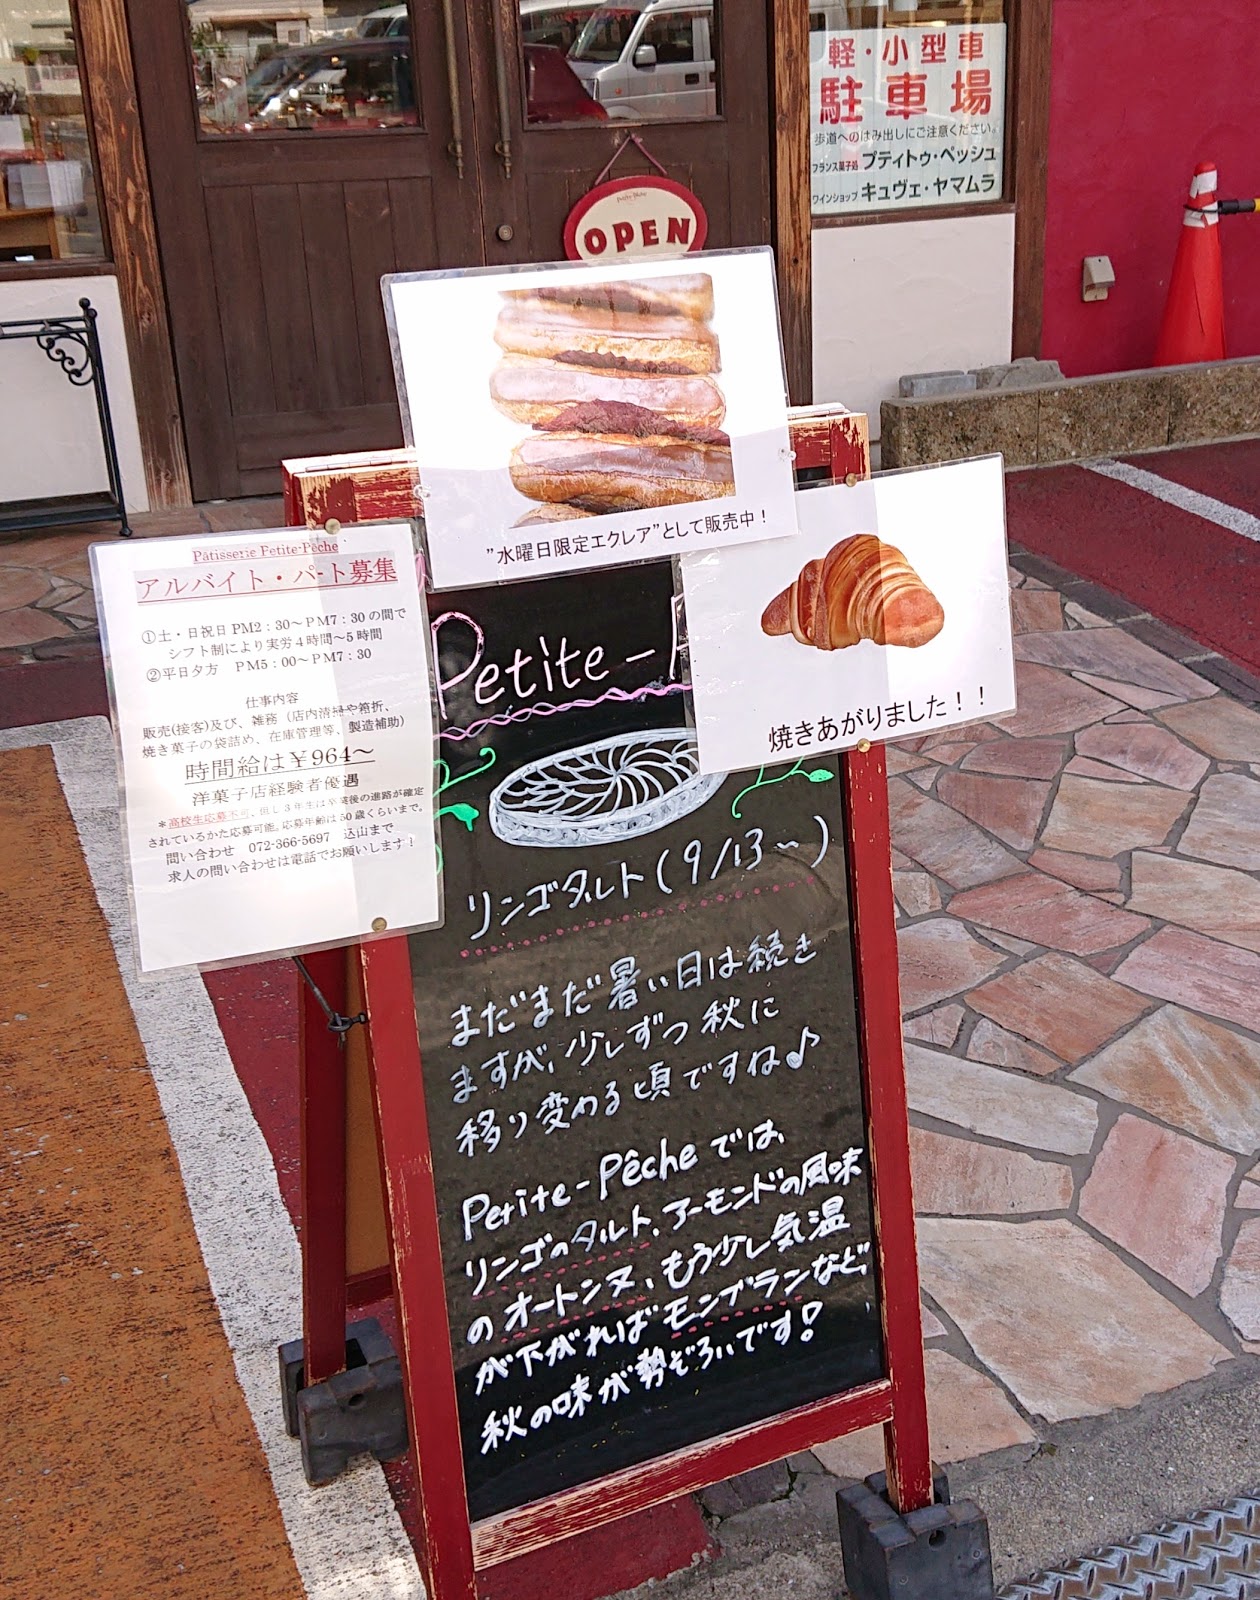 軽・小型車
駐車場
歩道へのはみ出しにご注意ください。
フランス菓子処 プティトゥ・ペッシュ
ワインショップ キュヴェ・ヤマムラ
OPEN
”水曜日限定エクレア”として販売中！
焼きあがりました！！
Pâtisserie Petite-Pêche
アルバイト・パート募集
①土・日祝日 PM2：30～PM7：30の間で
シフト制により実労4時間～5時間
②平日夕方 PM5：00～PM7：30
仕事内容
販売(接客)及び、雑務（店内清掃や箱折、
焼き菓子の袋詰め、在庫管理等、製造補助）
時間給は￥964～
洋菓子店経験者優遇
＊高校生応募不可、但し3年生は卒業後の進路が確定
されているかた応募可能。応募年齢は50歳くらいまで。
問い合わせ 072-366-5697 込山まで
求人の問い合わせは電話でお願いします！
Petite-
リンゴタルト(9/13～)
まだまだ暑い日は続き
ますが、少しずつ秋に
移り変わる頃ですね♪
Petite-Pêcheでは、
リンゴのタルト、アーモンドの風味
のオートンヌ、もう少し気温
が下がればモンブランなど、
秋の味が勢ぞろいです！